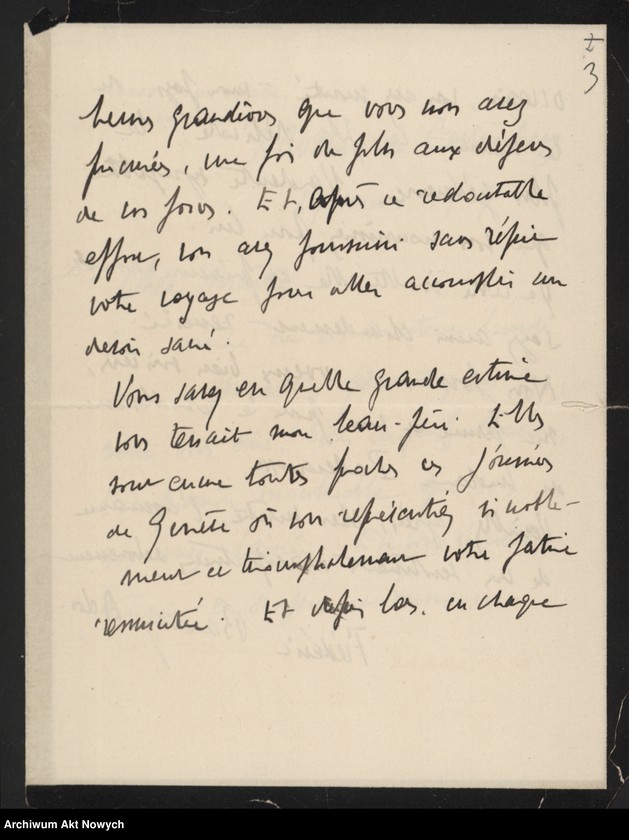 I
3
heures grandioses que vous nous avez
procurées, une fois de plus aux dépens
de vos forces. Et, après ce redoutable
effort, vous avez poursuivi sans répit
votre voyage pour aller accomplir un
devoir sacré.
Vous savez en quelle grande estime
vous tenait mon beau-père. Elles
sont encore toutes proches ces journées
de Genève où vous représentiez si noble-
ment et triomphalement votre patrie
ressuscitée. Et depuis lors, en chaque
Archiwum Akt Nowych